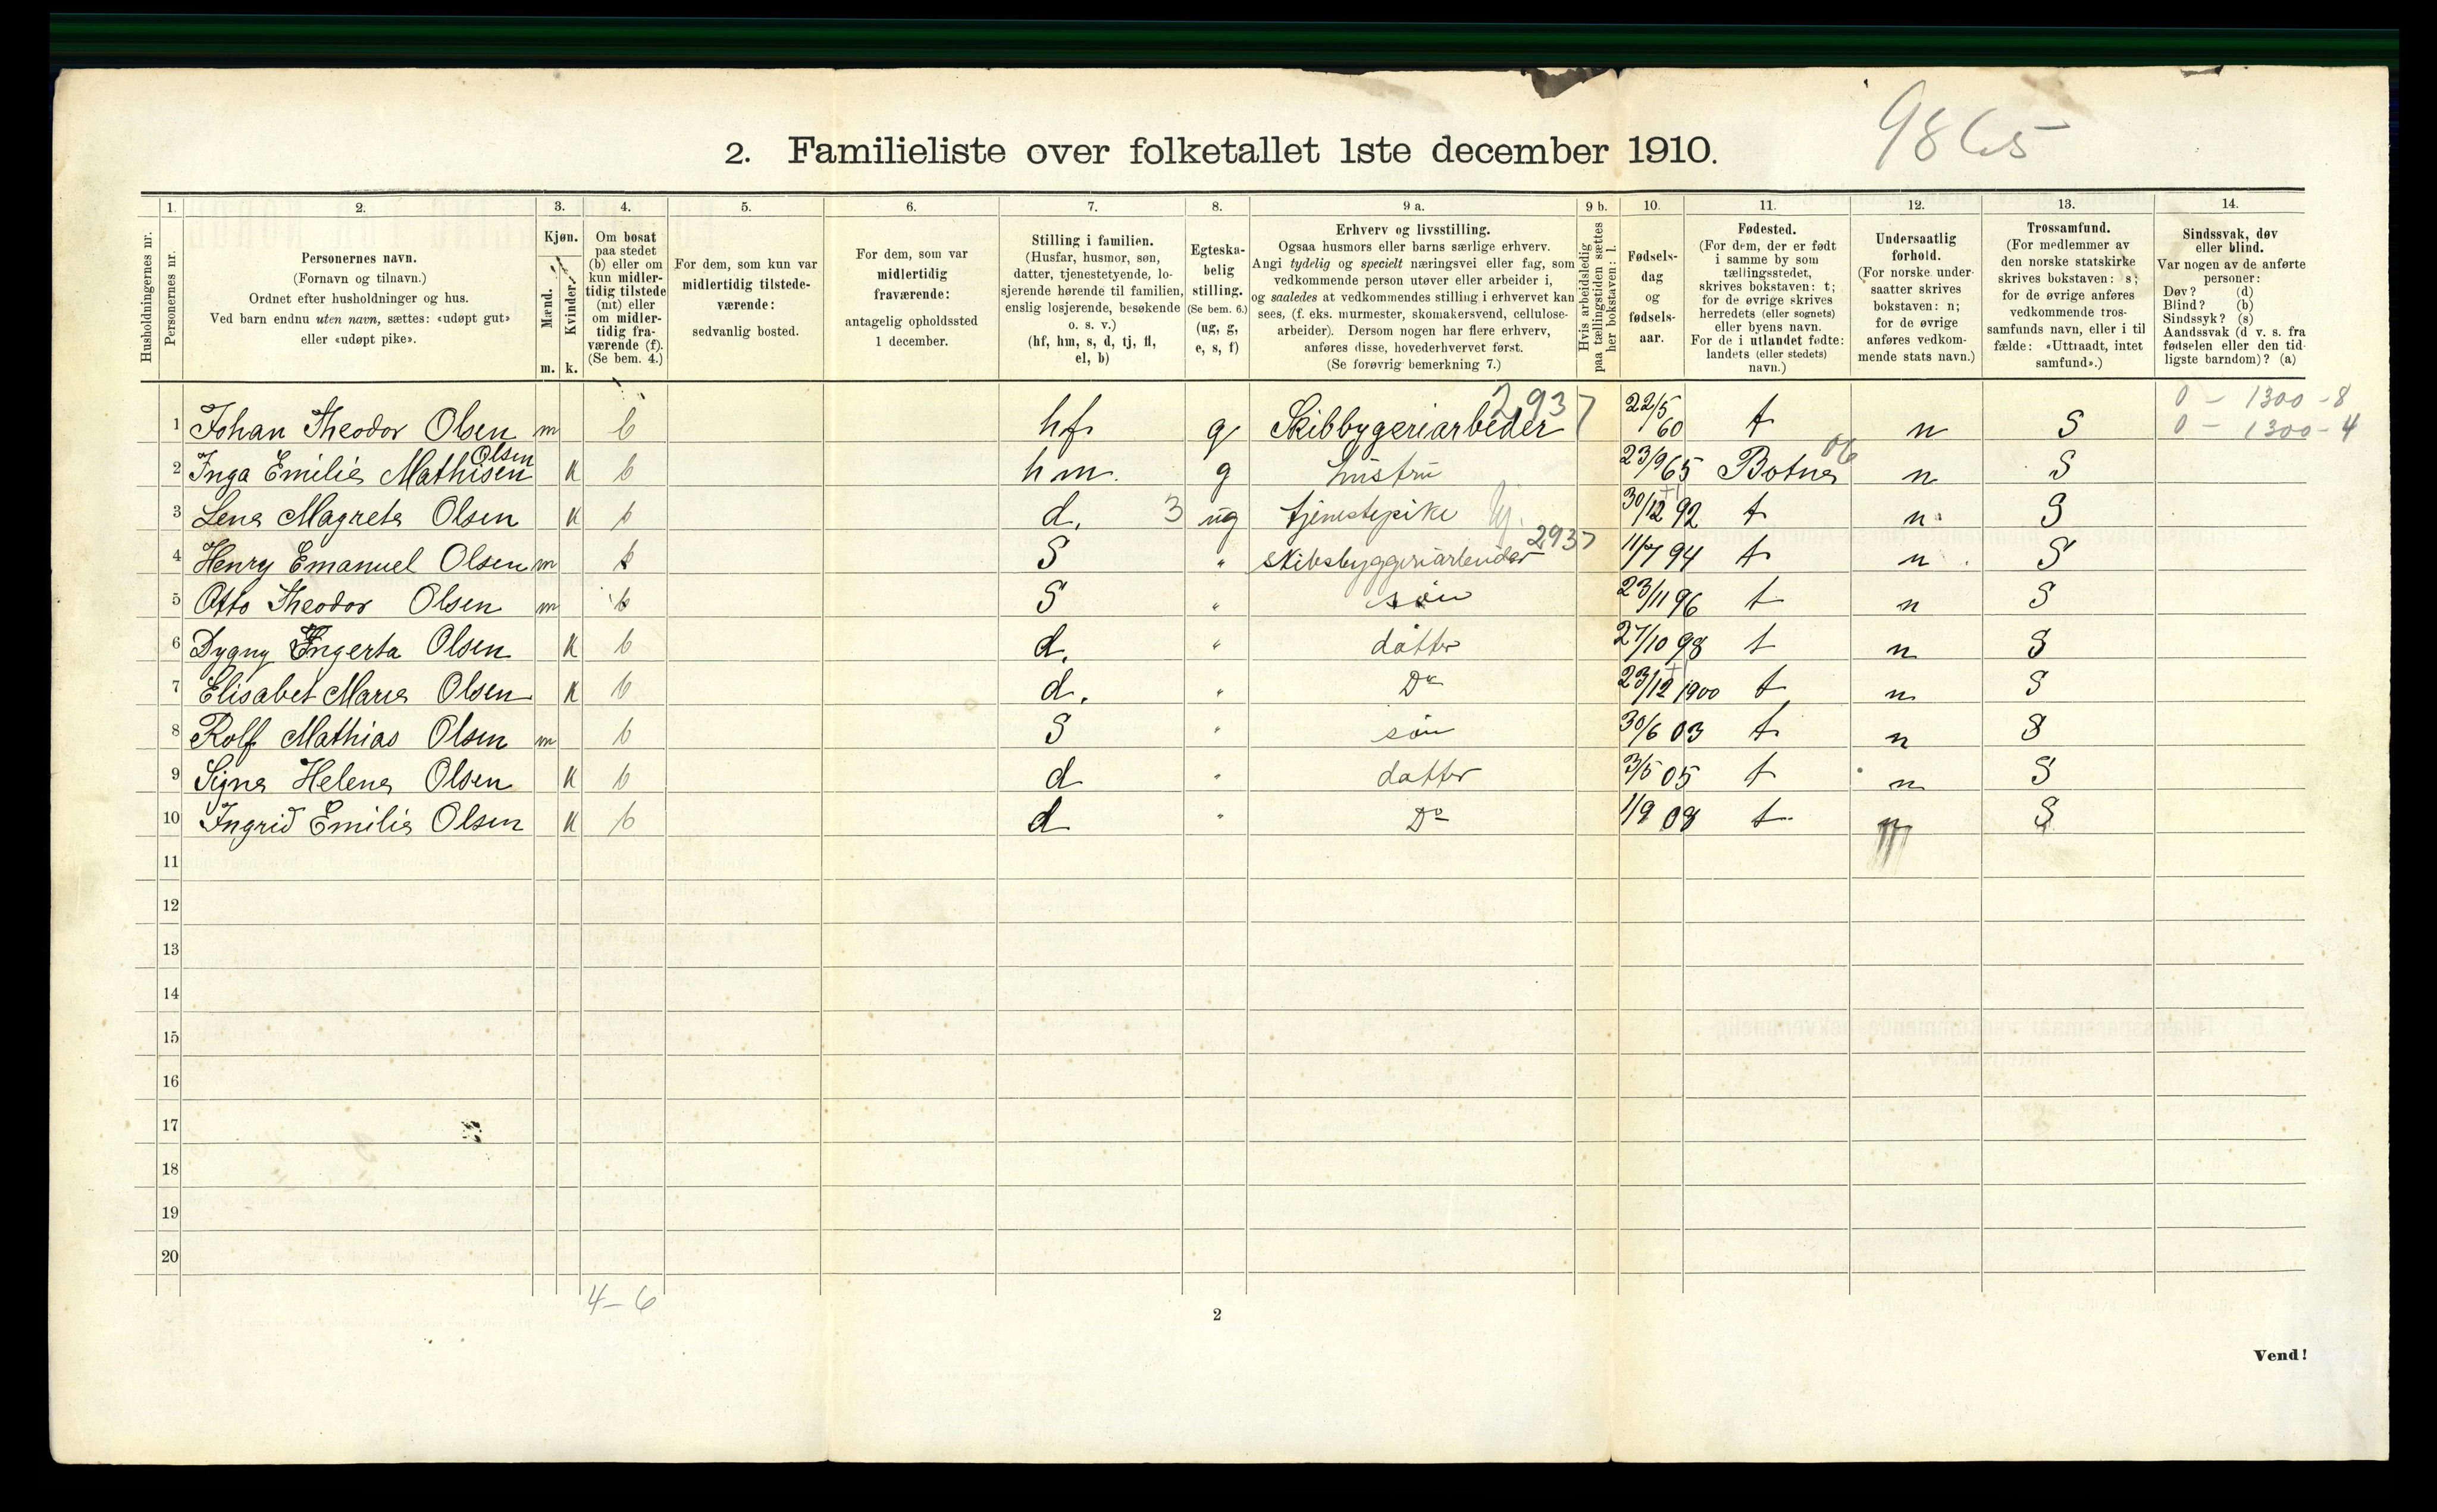 9865
2. Familieliste over folketallet 1ste december 1910.
Husholdningernes nr.
1. Personernes nr.
2. Personernes navn. (Fornavn og tilnavn.) Ordnet efter husholdninger og hus. Ved barn endnu uten navn, sættes: «udøpt gut» eller «udøpt pike».
3. Kjøn. Mænd. m. Kvinder. k.
4. Om bosat paa stedet (b) eller om kun midlertidig tilstede (mt) eller om midlertidig fraværende (f). (Se bem. 4.)
5. For dem, som kun var midlertidig tilstedeværende: sedvanlig bosted.
6. For dem, som var midlertidig fraværende: antagelig opholdssted 1 december.
7. Stilling i familien. (Husfar, husmor, søn, datter, tjenestetyende, losjerende hørende til familien, enslig losjerende, besøkende o. s. v.) (hf, hm, s, d, tj, fl, el, b)
8. Egteskabelig stilling. (Se bem. 6.) (ug, g, e, s, f)
9 a. Erhverv og livsstilling. Ogsaa husmors eller barns særlige erhverv. Angi tydelig og specielt næringsvei eller fag, som vedkommende person utøver eller arbeider i, og saaledes at vedkommendes stilling i erhvervet kan sees, (f. eks. murmester, skomakersvend, cellulosearbeider). Dersom nogen har flere erhverv, anføres disse, hovederhvervet først. (Se forøvrig bemerkning 7.)
9 b. Hvis arbeidsledig paa tællingstiden sættes her bokstaven: l.
10. Fødselsdag og fødselsaar.
11. Fødested. (For dem, der er født i samme by som tællingsstedet, skrives bokstaven: t; for de øvrige skrives herredets (eller sognets) eller byens navn. For de i utlandet fødte: landets (eller stedets) navn.)
12. Undersaatlig forhold. (For norske undersaatter skrives bokstaven: n; for de øvrige anføres vedkommende stats navn.)
13. Trossamfund. (For medlemmer av den norske statskirke skrives bokstaven: s; for de øvrige anføres vedkommende trossamfunds navn, eller i tilfælde: «Uttraadt, intet samfund».)
14. Sindssvak, døv eller blind. Var nogen av de anførte personer: Døv? (d) Blind? (b) Sindssyk? (s) Aandssvak (d. v. s. fra fødselen eller den tidligste barndom)? (a)
0 - 1300 - 8
1 Johan Theodor Olsen m b hf g Skibbygeriarbeder 2937 22/5 60 t n S 0 - 1300 - 4
2 Inga Emilie Mathisen Olsen k b hm. g hustru 23/9 65 Botne 06 n S
3 Lena Magreta Olsen k b d. 3 ug tjenestepike tj. 30/12 92 t n S
4 Henry Emanuel Olsen m b S " skibsbyggeriarbeider 2937 11/7 94 t n S
5 Otto Theodor Olsen m b S " søn 23/11 96 t n S
6 Dygny Ingerta Olsen k b d. " datter 27/10 98 t n S
7 Elisabet Marie Olsen k b d. " Do 23/12 1900 t n S
8 Rolf Mathias Olsen m b S " søn 30/6 03 t n S
9 Signe Helene Olsen k b d " datter 3/5 05 t n S
10 Ingrid Emilie Olsen k b d " Do 1/9 08 t n S
11
12
13
14
15
16
17
18
19
20
4-6
2
Vend!